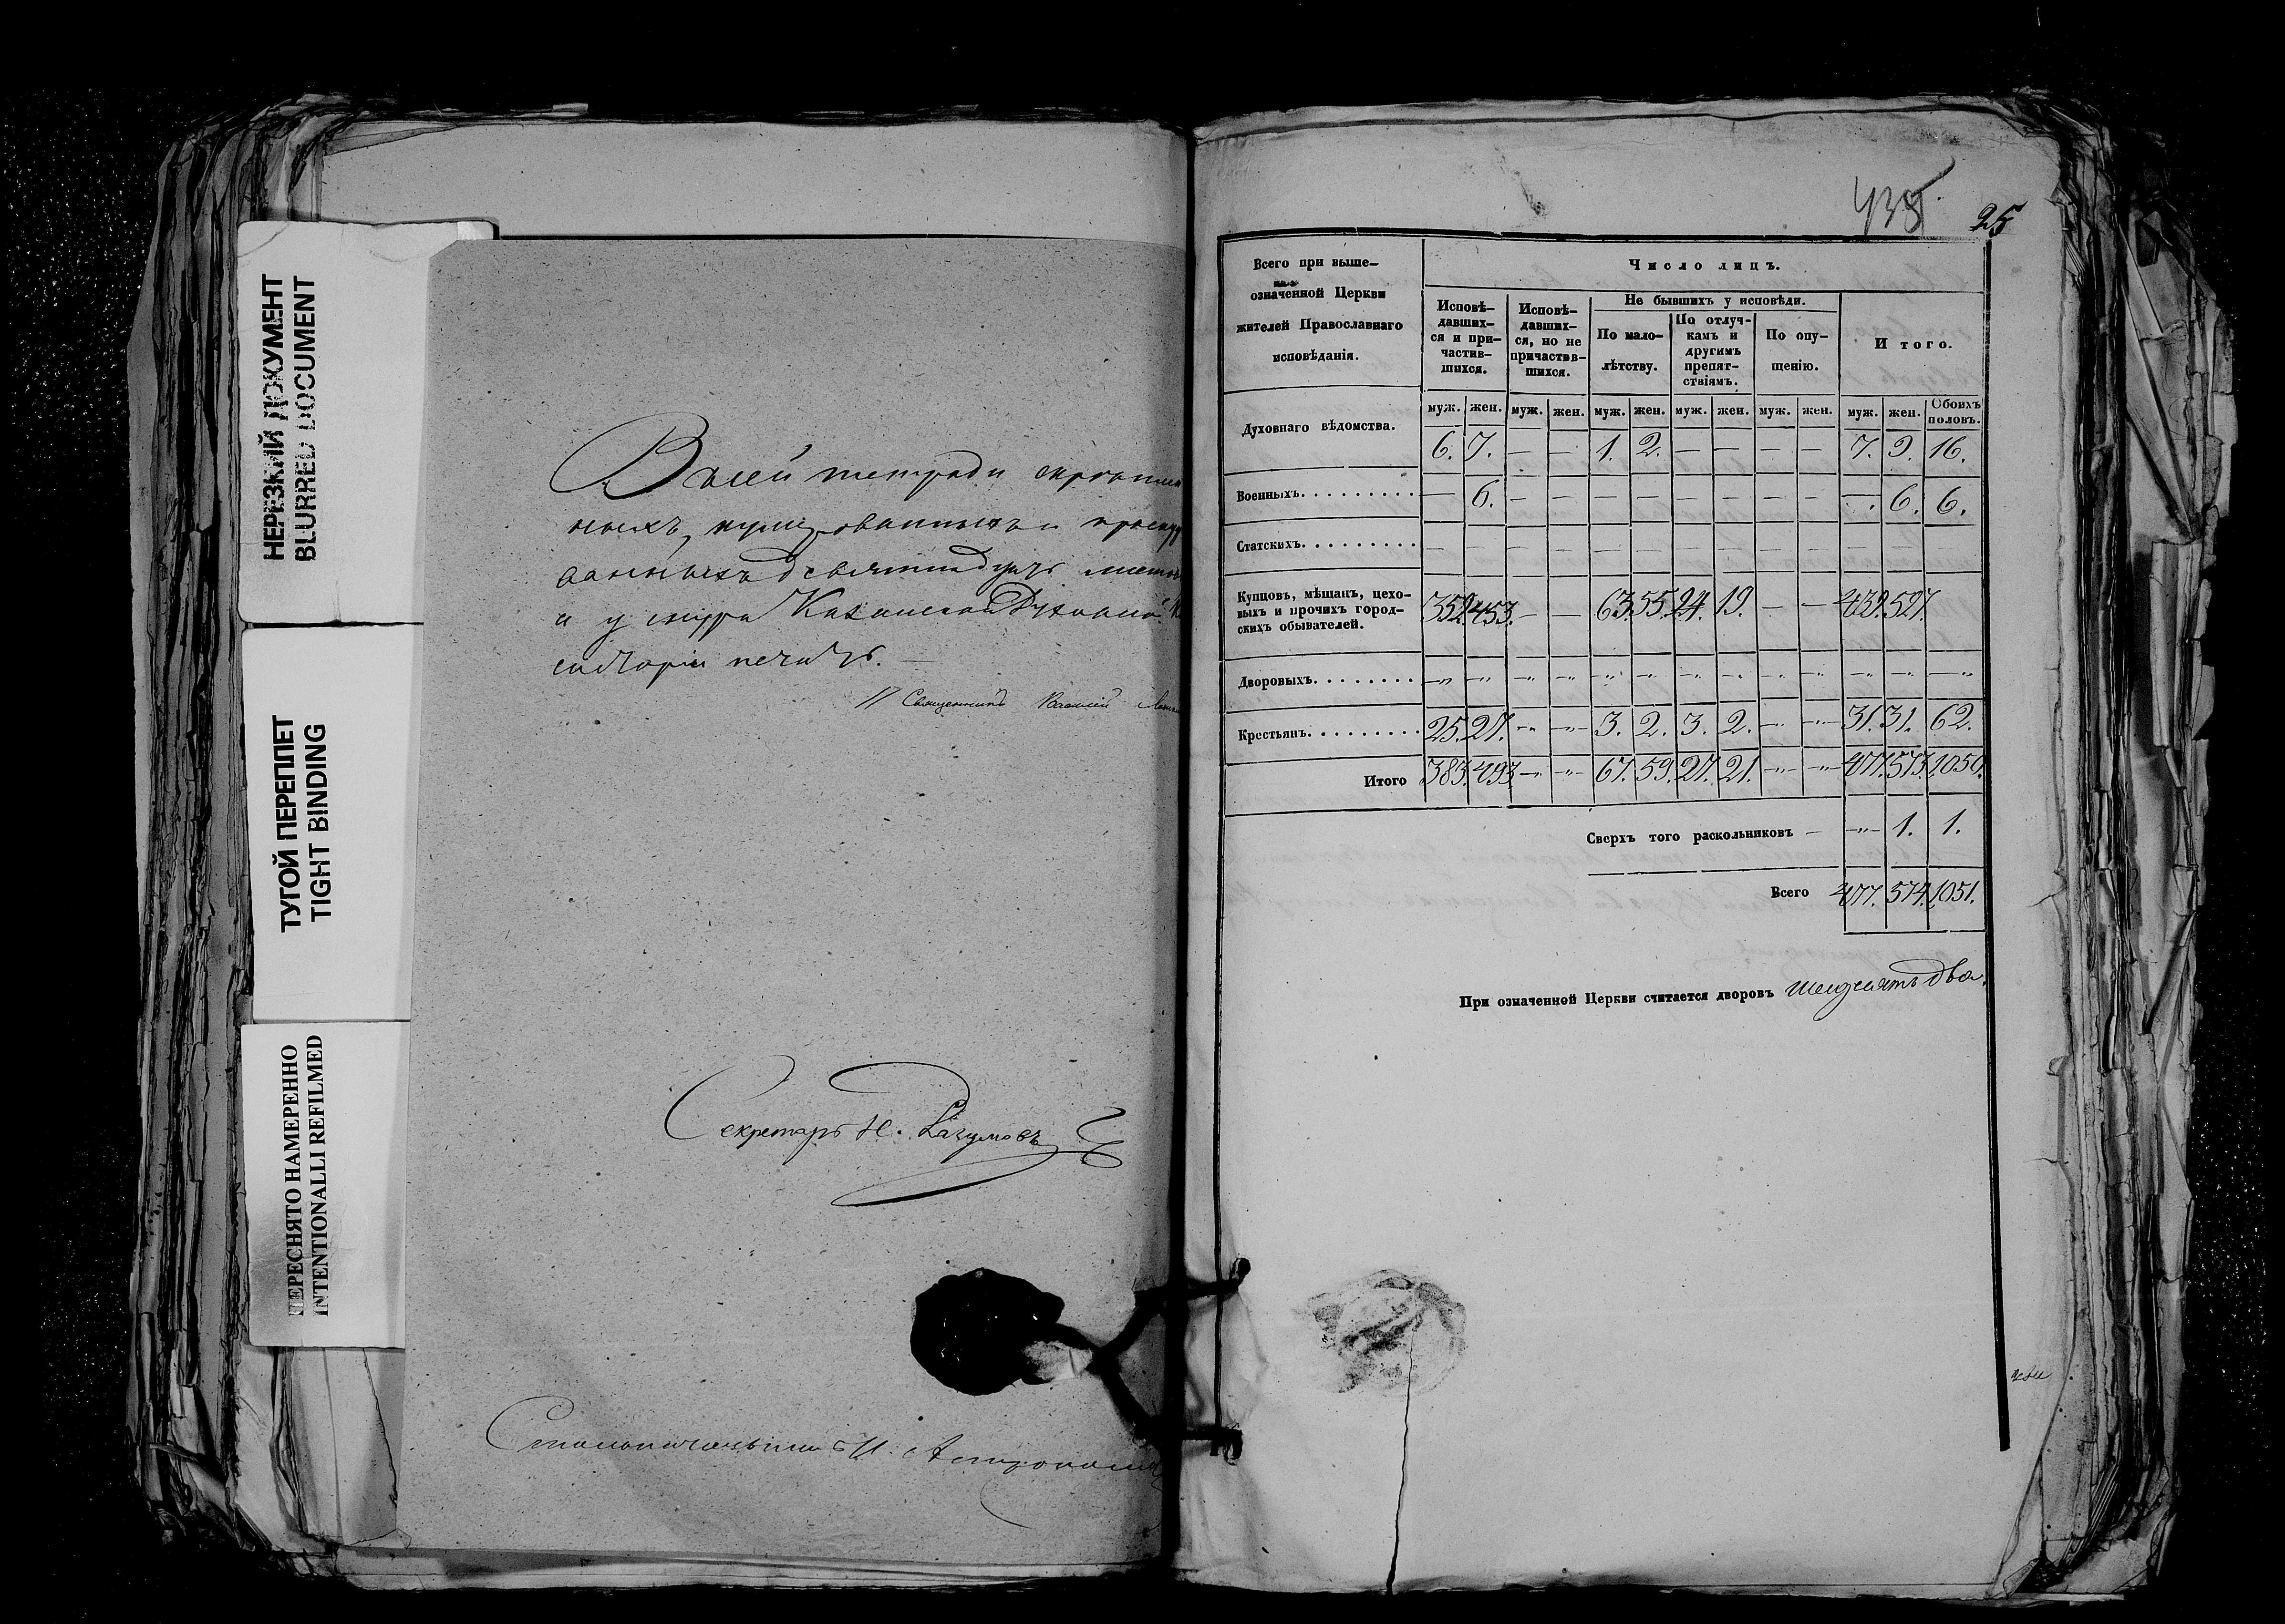 НЕРЕЗКИЙ ДОКУМЕНТ
BLURRED DOCUMENT
ТУГОЙ ПЕРЕПЛЕТ
TIGHT BINDING
ПЕРЕСНЯТО НАМЕРЕННО
INTENTIONALLI REFILMED
В сей тетради
ныхъ, нумерованныхъ и
и у шнура Казанской Духовной
систоріи печать.
Священникъ Василій
Секретарь Н. Разумовъ
Столоначальникъ
435.
25
Всего при выше-
означенной Церкви
жителей Православнаго
исповѣданія.
Число лицъ.
Исповѣ-
давших-
ся и при-
частив-
шихся.
Исповѣ-
давших-
ся, но не
причастив-
шихся.
Не бывшихъ у исповѣди.
По мало-
лѣтству.
По отлуч-
камъ и
другимъ
препят-
ствіямъ.
По опу-
щенію.
Итого.
муж. жен. муж. жен. муж. жен. муж. жен. муж. жен. муж. жен. Обоихъ половъ.
Духовнаго вѣдомства. 6. 7. — — 1. 2. — — — — 7. 9. 16.
Военныхъ. . . . . . . . . — 6. — — — — — — — — — 6. 6.
Статскихъ. . . . . . . . . — — — — — — — — — — — — —
Купцовъ, мѣщанъ, цехо-
выхъ и прочихъ город-
скихъ обывателей.
352. 453. — — 63. 55. 24. 19. — — 439. 527.
Дворовыхъ. . . . . . . . —„— —„— —„— —„— —„— —„— —„— —„— —„— —„— —„— —„— —„—
Крестьянъ. . . . . . . . . 25. 27. —„— —„— 3. 2. 3. 2. —„— —„— 31. 31. 62.
Итого 383. 493. —„— —„— 67. 59. 27. 21. —„— —„— 477. 573. 1050.
Сверхъ того раскольниковъ — —„— 1. 1.
Всего 477. 574. 1051.
При означенной Церкви считается дворовъ шесдсятъ два.